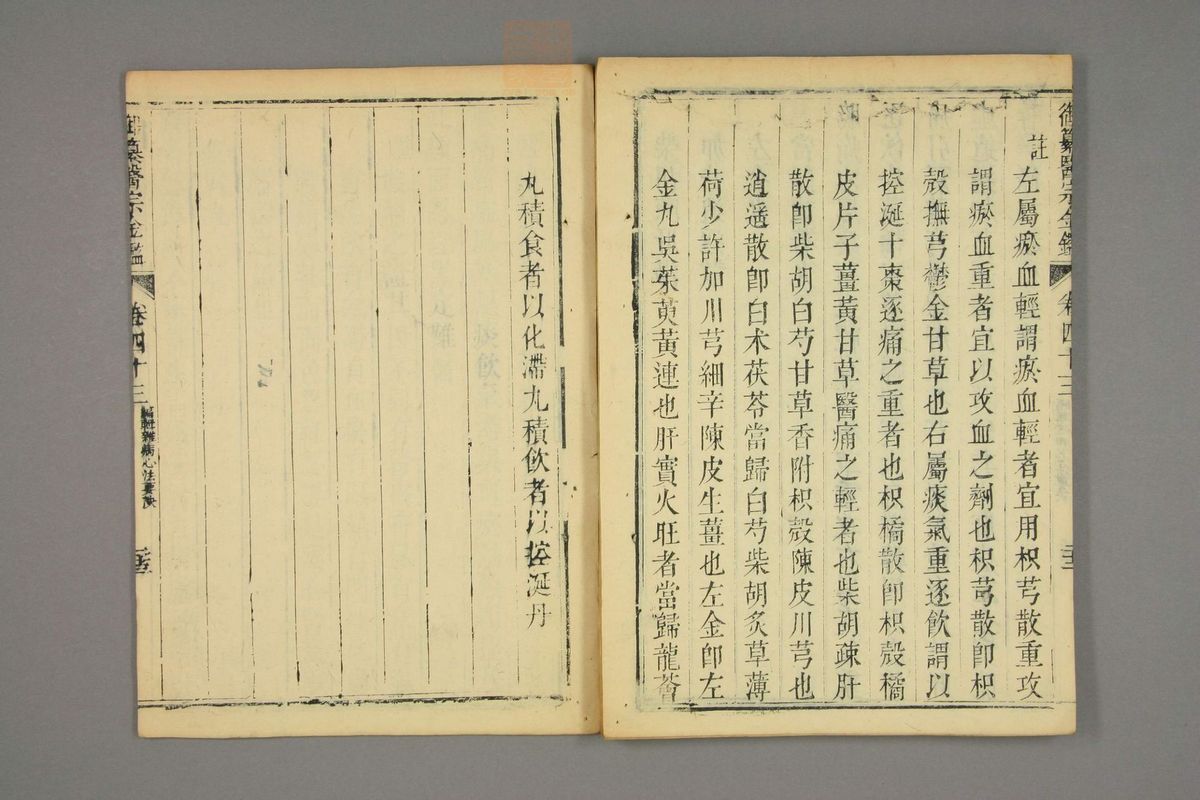 御纂醫宗金鑑 卷四十三
註
左屬瘀血輕謂瘀血輕者宜用枳芎散重攻
謂瘀血重者宜以攻血之劑也枳芎散卽枳
殼撫芎鬱金甘草也右屬痰氣重逐飲謂以
控涎十棗逐痛之重者也枳橘散卽枳殼橘
皮片子薑黃甘草醫痛之輕者也柴胡疎肝
散卽柴胡白芍甘草香附枳殼陳皮川芎也
逍遥散卽白术茯苓當歸白芍柴胡炙草薄
荷少許加川芎細辛陳皮生薑也左金卽左
金丸吳茱萸黃連也肝實火旺者當歸龍薈
丸積食者以化滯丸積飲者以控涎丹
御纂醫宗金鑑 卷四十三 編輯雜病心法要訣